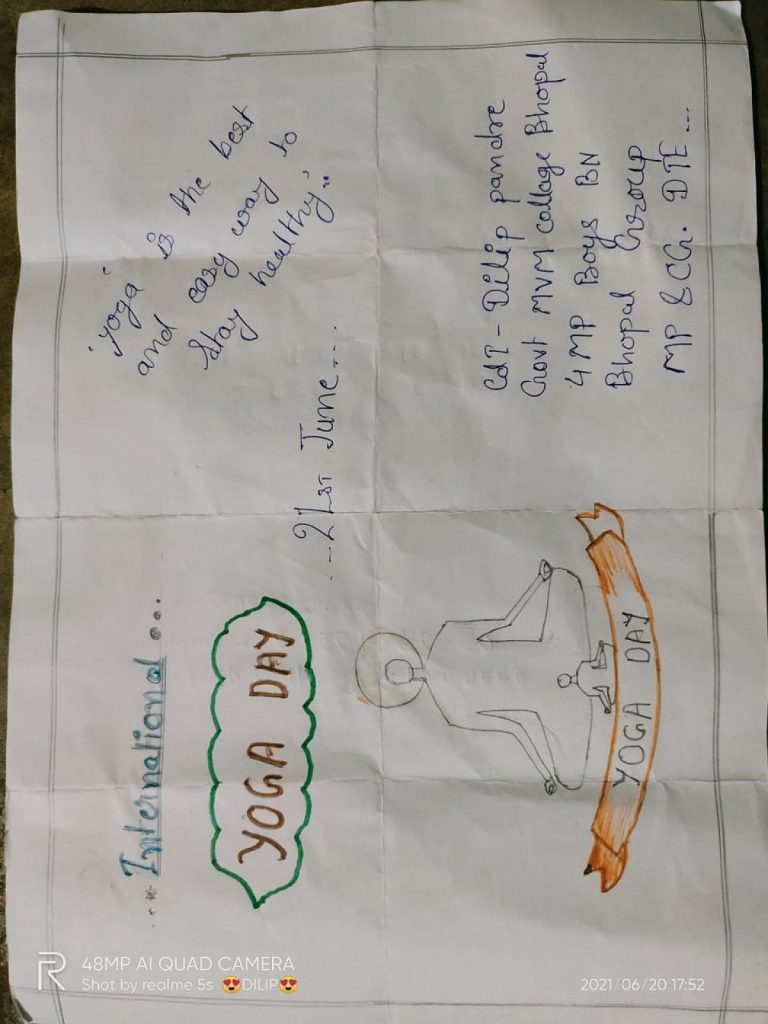 ...International...
YOGA DAY
...21st June....
"Yoga" is the best
and easy way to
Stay healthy"..
YOGA DAY
CdT - Dilip pandre
Govt MVM collage Bhopal
4 MP Boys BN
Bhopal Group
MP & CG. DTE...
48MP AI QUAD CAMERA
Shot by realme 5s 😍DILIP😍
2021/06/20 17:52